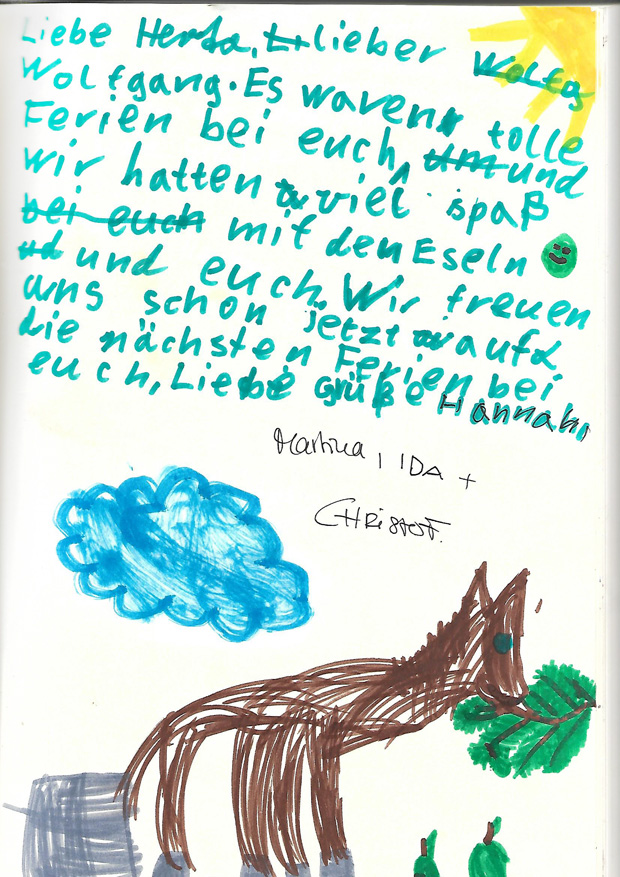 Liebe Herta, lieber
Wolfgang. Es waren tolle
Ferien bei euch, und
wir hatten viel spaß
bei euch mit den Eseln
und euch. Wir freuen
uns schon jetzt auf
die nächsten Ferien bei
euch, Liebe Grüße Hannah,
Martina, IDA +
CHRISTOF.